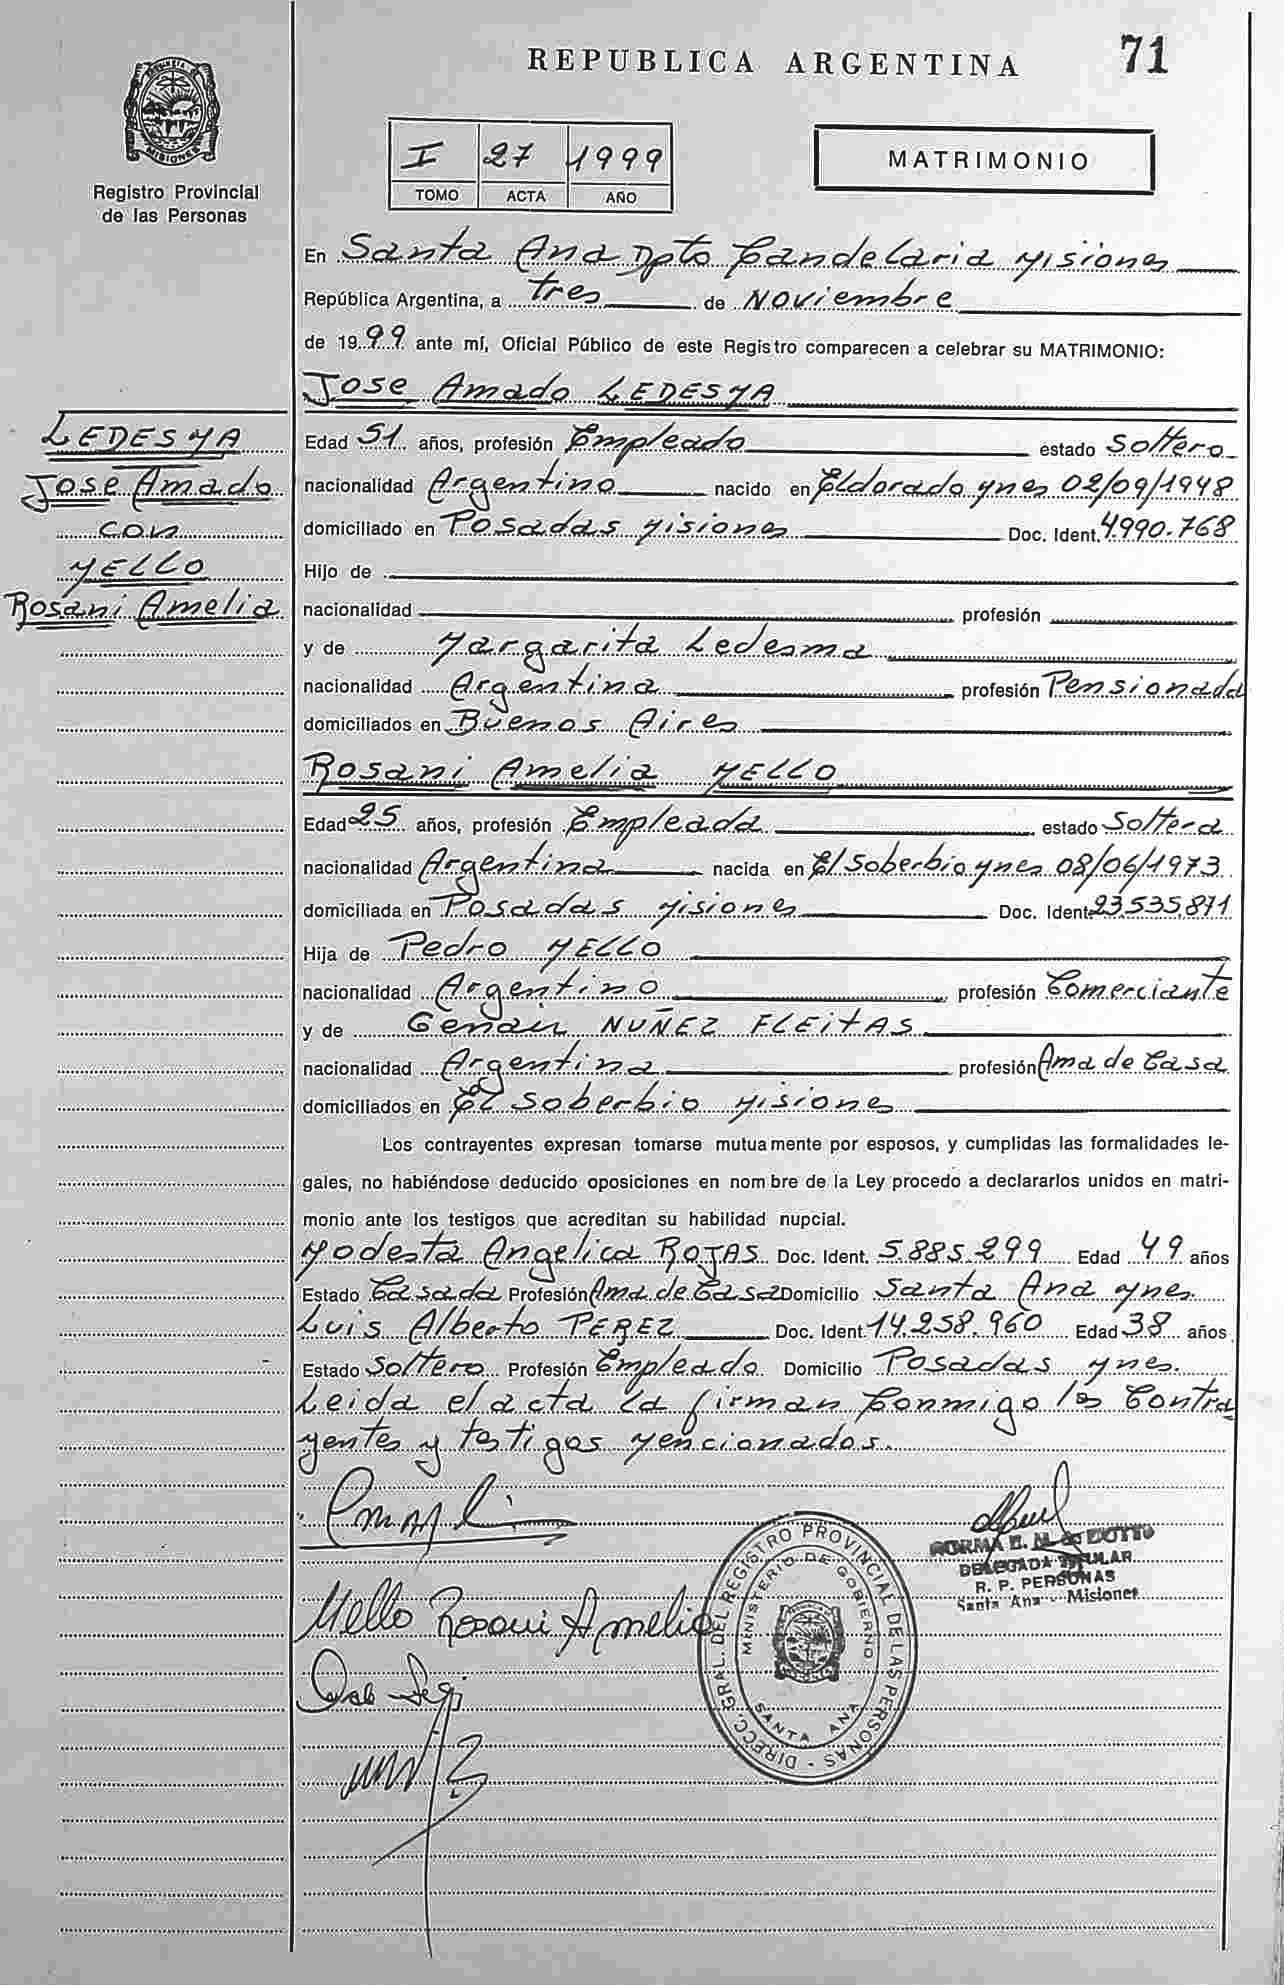 REPUBLICA ARGENTINA
71
MISIONES
Registro Provincial
de las Personas
I 27 1999
TOMO ACTA AÑO
MATRIMONIO
En Santa Ana Dpto Candelaria Misiones
República Argentina, a tres de Noviembre
de 1999 ante mí, Oficial Público de este Registro comparecen a celebrar su MATRIMONIO:
Jose Amado LEDESMA
LEDESMA
Jose Amado
con
MELLO
Rosani Amelia
Edad 51 años, profesión Empleado estado Soltero
nacionalidad Argentino nacido en Eldorado Mnes 02/09/1948
domiciliado en Posadas Misiones Doc. Ident. 4.990.768
Hijo de
nacionalidad profesión
y de Margarita Ledesma
nacionalidad Argentina profesión Pensionada
domiciliados en Buenos Aires
Rosani Amelia MELLO
Edad 25 años, profesión Empleada estado Soltera
nacionalidad Argentina nacida en El Soberbio Mnes 08/06/1973
domiciliada en Posadas Misiones Doc. Ident. 23.535.871
Hija de Pedro MELLO
nacionalidad Argentino profesión Comerciante
y de Genair NUÑEZ FLEITAS
nacionalidad Argentina profesión Ama de Casa
domiciliados en El Soberbio Misiones
Los contrayentes expresan tomarse mutuamente por esposos, y cumplidas las formalidades le-
gales, no habiéndose deducido oposiciones en nombre de la Ley procedo a declararlos unidos en matri-
monio ante los testigos que acreditan su habilidad nupcial.
Modesta Angelica ROJAS Doc. Ident. 5.885.299 Edad 49 años
Estado Casada Profesión Ama de Casa Domicilio Santa Ana Mnes.
Luis Alberto PEREZ Doc. Ident. 14.258.960 Edad 38 años
Estado Soltero Profesión Empleado Domicilio Posadas Mnes.
Leida el acta la firman Conmigo los Contra
yentes y testigos Mencionados.
NORMA E. M. de DOTTO
DELEGADA TITULAR
R. P. PERSONAS
Santa Ana - Misiones
Mello Rosani Amelia
DIRECC. GRAL. DEL REGISTRO PROVINCIAL DE LAS PERSONAS
MINISTERIO DE GOBIERNO
SANTA ANA